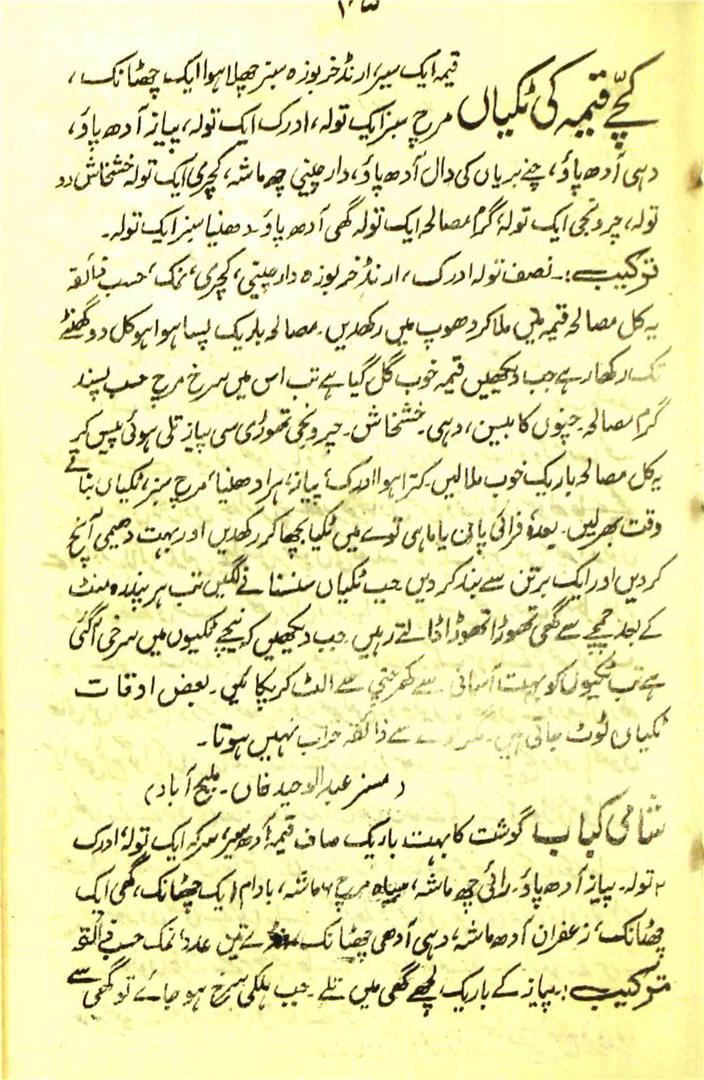 کچّے قیمہ کی ٹکیاں قیمہ ایک سیر، ارنڈ خربوزہ سبز چھلا ہوا ایک چھٹانک،
مرچ سبز ایک تولہ، ادرک ایک تولہ، پیاز آدھ پاؤ،
دہی آدھ پاؤ، چنے بریاں کی دال آدھ پاؤ، دار چینی چھ ماشہ، کچری ایک تولہ خشخاش دو
تولہ، چرونجی ایک تولہ، گرم مصالحہ ایک تولہ گھی آدھ پاؤ۔ دھنیا سبز ایک تولہ۔
ترکیب:۔ نصف تولہ ادرک، ارنڈ خربوزہ دار چینی، کچری، نمک، حسب ذائقہ
یہ کل مصالحہ قیمہ میں ملا کر دھوپ میں رکھدیں۔ مصالحہ باریک پسا ہوا ہو کل دو گھنٹے
تک رکھا رہے جب دیکھیں قیمہ خوب گل گیا ہے تب اس میں سرخ مرچ حسب پسند
گرم مصالحہ۔ چنوں کا بیسن، دہی۔ خشخاش۔ چرونجی تھوڑی سی پیاز تلی ہوئی پیس کر
یہ کل مصالحہ باریک خوب ملا لیں۔ کترا ہوا ادرک، پیاز، ہرا دھنیا، مرچ سبز، ٹکیاں بناتے
وقت بھر لیں۔ بعدہٗ فرائی پان یا ماہی توے میں ٹکیا بچھا کر رکھدیں اور بہت دھیمی آنچ
کر دیں اور ایک برتن سے بند کر دیں جب ٹکیاں سنسنانے لگیں تب ہر پندرہ منٹ
کے بعد چمچے سے گھی تھوڑا تھوڑا ڈالتے رہیں۔ جب دیکھیں کہ نیچے ٹکیوں میں سرخی آگئی
ہے تب ٹکیوں کو بہت آسانی سے کھرچنی سے الٹ کر پکا لیں۔ بعض اوقات
ٹکیاں ٹوٹ جاتی ہیں۔ مگر سے ذائقہ خراب نہیں ہوتا۔
(مسنر عبدالوحید خاں۔ ملیح آباد)
شامی کباب گوشت کا بہت باریک صاف قیمہ آدھ سیر، سرکہ ایک تولہ، ادرک
۲ تولہ۔ پیاز آدھ پاؤ۔ رائی چھ ماشہ، سیاہ مرچ ۶ ماشہ، بادام ایک چھٹانک، گھی ایک
چھٹانک، زعفران آدھ ماشہ، دہی آدھی چھٹانک، تین عدد، نمک حسب ذائقہ
ترکیب:۔ پیاز کے باریک لچھے گھی میں تلے۔ جب ہلکی سرخ ہو جائے تو گھی سے